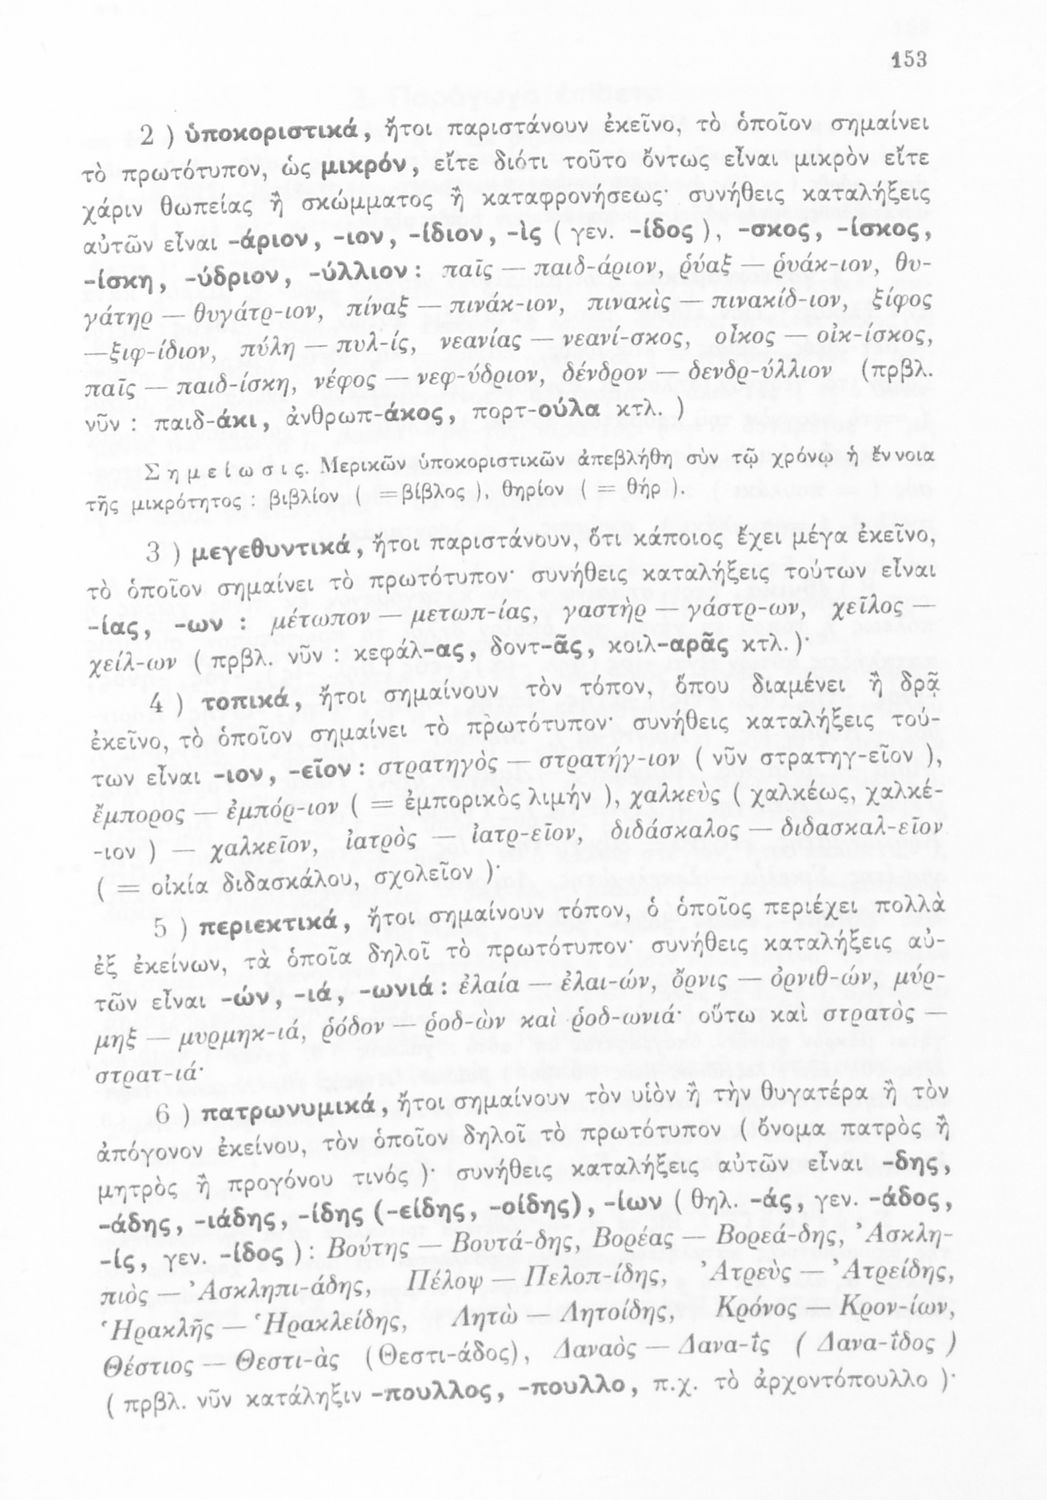 153
2 ) ὑποκοριστικά, ἤτοι παριστάνουν ἐκεῖνο, τὸ ὁποῖον σημαίνει
τὸ πρωτότυπον, ὡς μικρόν, εἴτε διότι τοῦτο ὄντως εἶναι μικρὸν εἴτε
χάριν θωπείας ἢ σκώμματος ἢ καταφρονήσεως· συνήθεις καταλήξεις
αὐτῶν εἶναι -άριον, -ιον, -ίδιον, -ὶς ( γεν. -ίδος ), -σκος, -ίσκος,
-ίσκη, -ύδριον, -ύλλιον : παῖς — παιδ-άριον, ῥύαξ — ῥυάκ-ιον, θυ-
γάτηρ — θυγάτρ-ιον, πίναξ — πινάκ-ιον, πινακὶς — πινακίδ-ιον, ξίφος
—ξιφ-ίδιον, πύλη — πυλ-ίς, νεανίας — νεανί-σκος, οἶκος — οἰκ-ίσκος,
παῖς — παιδ-ίσκη, νέφος — νεφ-ύδριον, δένδρον — δενδρ-ύλλιον (πρβλ.
νῦν : παιδ-άκι, ἀνθρωπ-άκος, πορτ-ούλα κτλ. )
Σημείωσις. Μερικῶν ὑποκοριστικῶν ἀπεβλήθη σὺν τῷ χρόνῳ ἡ ἔννοια
τῆς μικρότητος : βιβλίον ( =βίβλος ), θηρίον ( = θήρ ).
3 ) μεγεθυντικά, ἤτοι παριστάνουν, ὅτι κάποιος ἔχει μέγα ἐκεῖνο,
τὸ ὁποῖον σημαίνει τὸ πρωτότυπον· συνήθεις καταλήξεις τούτων εἶναι
-ίας, -ων : μέτωπον — μετωπ-ίας, γαστὴρ — γάστρ-ων, χεῖλος —
χείλ-ων ( πρβλ. νῦν : κεφάλ-ας, δοντ-ᾶς, κοιλ-αρᾶς κτλ. )·
4 ) τοπικά, ἤτοι σημαίνουν τὸν τόπον, ὅπου διαμένει ἢ δρᾷ
ἐκεῖνο, τὸ ὁποῖον σημαίνει τὸ πρωτότυπον· συνήθεις καταλήξεις τού-
των εἶναι -ιον, -εῖον : στρατηγὸς — στρατήγ-ιον ( νῦν στρατηγ-εῖον ),
ἔμπορος — ἐμπόρ-ιον ( = ἐμπορικὸς λιμήν ), χαλκεὺς ( χαλκέως, χαλκέ-
-ιον ) — χαλκεῖον, ἰατρὸς — ἰατρ-εῖον, διδάσκαλος — διδασκαλ-εῖον
( = οἰκία διδασκάλου, σχολεῖον )·
5 ) περιεκτικά, ἤτοι σημαίνουν τόπον, ὁ ὁποῖος περιέχει πολλὰ
ἐξ ἐκείνων, τὰ ὁποῖα δηλοῖ τὸ πρωτότυπον· συνήθεις καταλήξεις αὐ-
τῶν εἶναι -ών, -ιά, -ωνιά : ἐλαία — ἐλαι-ών, ὄρνις — ὀρνιθ-ών, μύρ-
μηξ — μυρμηκ-ιά, ῥόδον — ῥοδ-ὼν καὶ ῥοδ-ωνιά· οὕτω καὶ στρατὸς —
στρατ-ιά·
6 ) πατρωνυμικά, ἤτοι σημαίνουν τὸν υἱὸν ἢ τὴν θυγατέρα ἢ τὸν
ἀπόγονον ἐκείνου, τὸν ὁποῖον δηλοῖ τὸ πρωτότυπον ( ὄνομα πατρὸς ἢ
μητρὸς ἢ προγόνου τινός )· συνήθεις καταλήξεις αὐτῶν εἶναι -δης,
-άδης, -ιάδης, -ίδης (-είδης, -οίδης), -ίων ( θηλ. -άς, γεν. -άδος,
-ίς, γεν. -ίδος ) : Βούτης — Βουτά-δης, Βορέας — Βορεά-δης, Ἀσκλη-
πιὸς — Ἀσκληπι-άδης, Πέλοψ — Πελοπ-ίδης, Ἀτρεὺς — Ἀτρείδης,
Ἡρακλῆς — Ἡρακλείδης, Λητὼ — Λητοίδης, Κρόνος — Κρον-ίων,
Θέστιος — Θεστι-ὰς (Θεστι-άδος), Δαναὸς — Δανα-ΐς ( Δανα-ΐδος )
( πρβλ. νῦν κατάληξιν -πουλλος, -πουλλο, π.χ. τὸ ἀρχοντόπουλλο )·